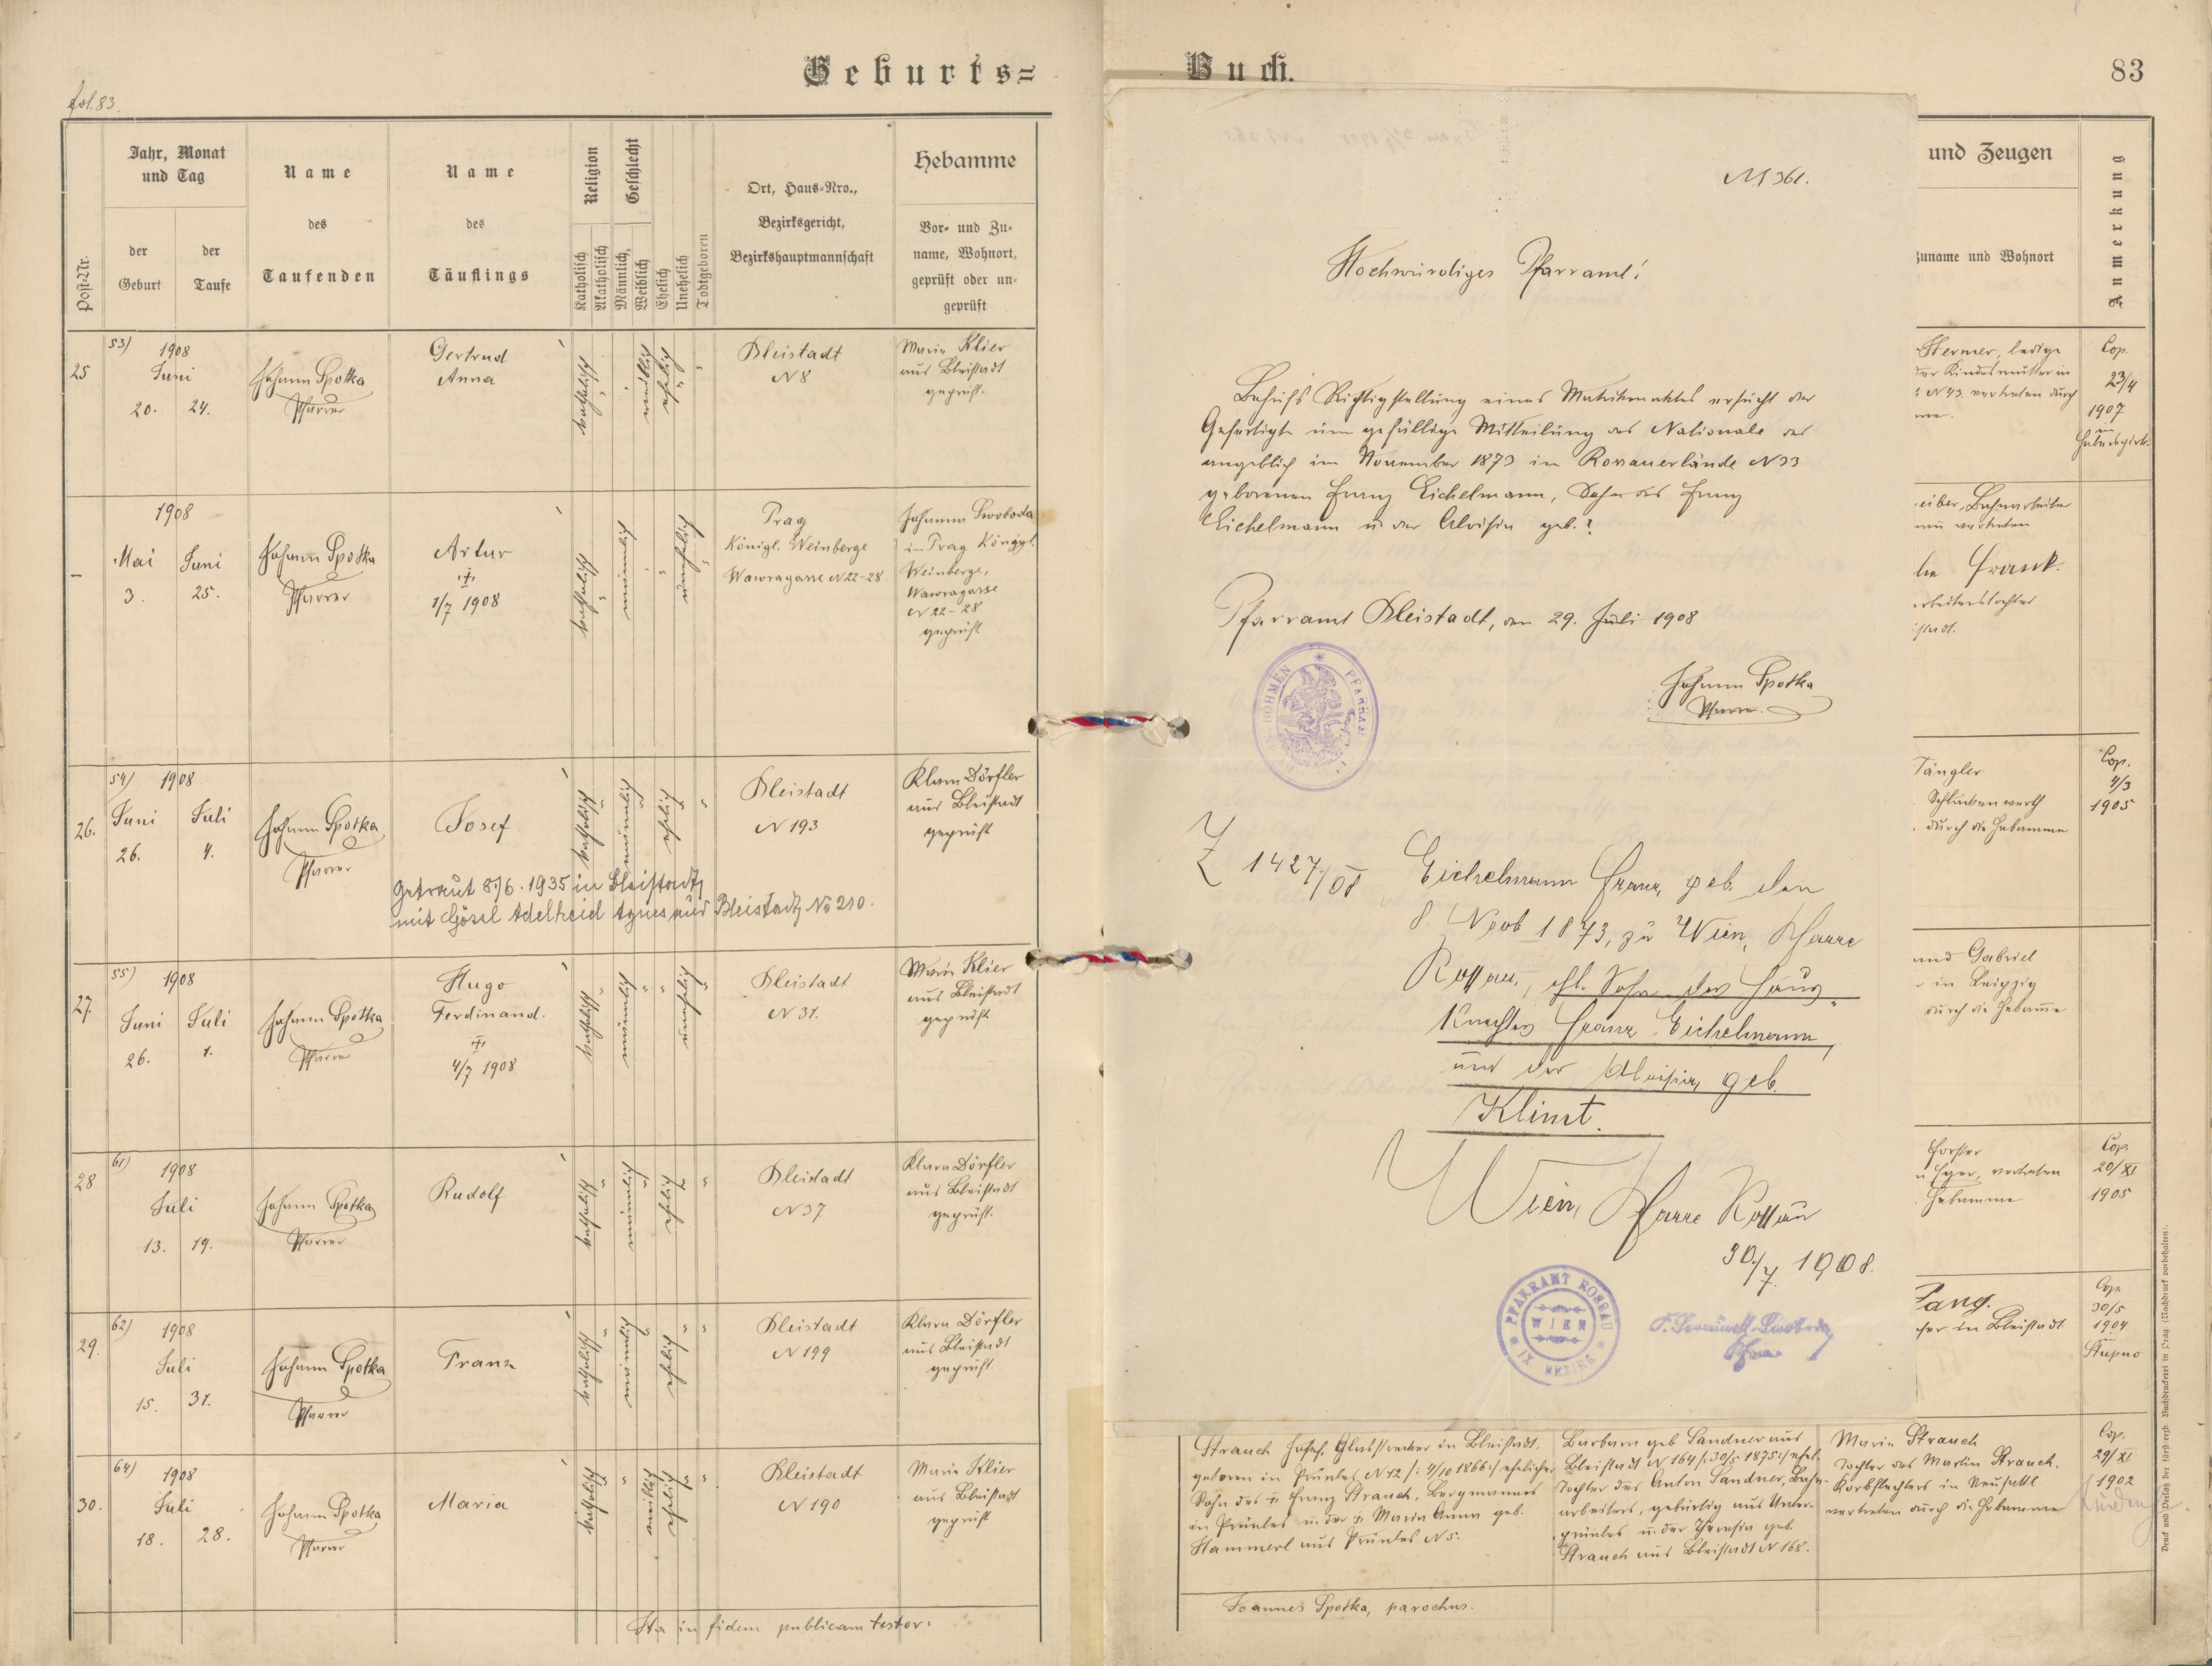 Geburts=
fol. 83.
Post-Nr.
Jahr, Monat
und Tag
der
Geburt
der
Taufe
Name
des
Taufenden
Name
des
Täuflings
Religion
Katholisch
Akatholisch
Geschlecht
Männlich,
Weiblich
Ehelich
Unehelich
Todtgeboren
Ort, Haus-Nro.,
Bezirksgericht,
Bezirkshauptmannschaft
Hebamme
Vor- und Zu-
name, Wohnort,
geprüft oder un-
geprüft
25
53)
1908
Juni
20.
24.
Johann Spotka
Pfarrer
Gertrud
Anna
katholisch
weiblich
ehelich
Bleistadt
N 8
Marie Klier
aus Bleistadt
geprüft.
1908
Mai
3.
Juni
25.
Johann Spotka
Pfarrer
Artur
1/7 1908
katholisch
männlich
unehelich
Prag
Königl. Weinberge
Wawragasse N 22-28
Johanna Swoboda
in Prag Königl.
Weinberge,
Wawragasse
N 22-28
geprüft
26.
54)
1908
Juni
26.
Juli
4.
Johann Spotka
Pfarrer
Josef
katholisch
männlich
ehelich
Bleistadt
N 193
Klara Dörfler
aus Bleistadt
geprüft
Getraut 8./6. 1935 in Bleistadt
mit Gössl Adelheid Agnes aus Bleistadt No 210.
27.
55)
1908
Juni
26.
Juli
1.
Johann Spotka
Pfarrer
Hugo
Ferdinand.
4/7 1908
katholisch
männlich
unehelich
Bleistadt
N 31.
Marie Klier
aus Bleistadt
geprüft
28
61)
1908
Juli
13.
19.
Johann Spotka
Pfarrer
Rudolf
katholisch
männlich
ehelich
Bleistadt
N 37
Klara Dörfler
aus Bleistadt
geprüft.
29.
62)
1908
Juli
15.
31.
Johann Spotka
Pfarrer
Franz
katholisch
männlich
ehelich
Bleistadt
N 199
Klara Dörfler
aus Bleistadt
geprüft.
30.
64)
1908
Juli
18.
28.
Johann Spotka
Pfarrer
Maria
katholisch
weiblich
ehelich
Bleistadt
N 190
Marie Klier
aus Bleistadt
geprüft
Ita in fidem publicam testor:
Buch.
83
N 361.
Hochwürdiges Pfarramt!
Behufs Richtigstellung eines Matrikenaktes ersucht der
Gefertigte um gefällige Mitteilung des Nationale des
angeblich im November 1873 in Rossauerlände N 33
geborenen Franz Eichelmann, Sohn des Franz
Eichelmann u. der Aloisia geb. ?
Pfarramt Bleistadt, am 29. Juli 1908
BÖHMEN
Johann Spotka
Pfarrer.
Z 1427/08
Eichelmann Franz, geb. den
8. Novb 1873, zu Wien, Pfarre
Rossau, ehl. Sohn des Haus-
knechtes Franz Eichelmann,
und der Aloisia, geb.
Klimt.
Wien, Pfarre Rossau
30/7. 1908.
PFARRAMT ROSSAU
WIEN
IX BEZIRK
und Zeugen
Zuname und Wohnort
Anmerkung
Hermer, ledige
der Kindesmutter in
N 43. vertreten durch
Cop.
23/4
1907
in
eiber, Bahnarbeiter
vertreten
Frank.
Tängler
Schlackenwerth
durch die Hebamme
Cop.
4/3
1905
und Gabriel
in Leipzig
durch die Hebamme
Forster
Eger, vertreten
Hebamme
Cop.
20/XI
1905
Lang.
in Bleistadt
Cop.
30/5
1904
in
Stupno
Strauch Josef, Glasstrecker in Bleistadt.
geboren in Prünles N 12 /: 4/10 1866:/ ehelicher
Sohn des † Franz Strauch, Bergmannes
in Prünles u. der † Maria Anna geb.
Hammerl aus Prünles N 5.
Barbara geb Sandner aus
Bleistadt N 164 /: 30/5 1875:/ ehel.
Tochter des Anton Sandner, Bahn-
arbeiters, gebürtig aus Unter-
prünles u. der Theresia geb.
Strauch aus Bleistadt N 168.
Marie Strauch
Tochter des Martin Strauch.
Korbflechters in Neusattl
vertreten durch die Hebamme
Cop.
29/XI
1902
Joannes Spotka, parochus.
Druck und Verlag der fürst-erzb. Buchdruckerei in Prag. (Nachdruck vorbehalten).